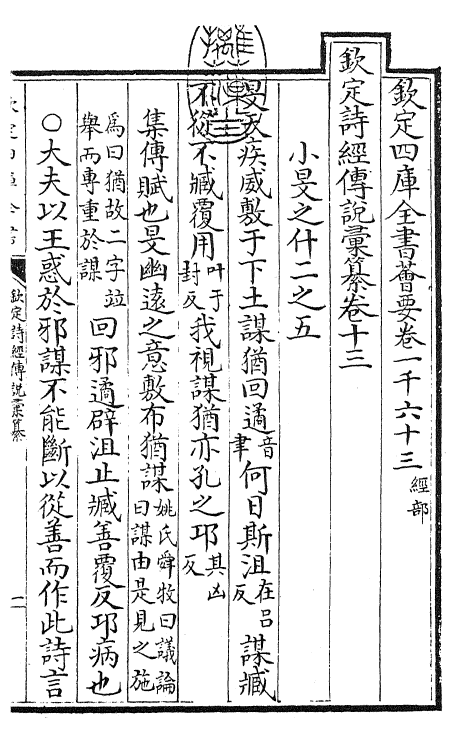 欽定四庫全書薈要卷一千六十三 經部
欽定詩經傳說彙纂卷十三
小旻之什二之五
旻天疾威敷于下土謀猶回遹音聿何日斯沮在呂反謀臧
不從不臧覆用叶于封反我視謀猶亦孔之邛其凶反
集傳賦也旻幽遠之意敷布猶謀姚氏舜牧曰議論曰謀由是見之施
為曰猶故二字竝舉而專重於謀回邪遹辟沮止臧善覆反邛病也
○大夫以王惑於邪謀不能斷以從善而作此詩言
欽定詩經傳說彙纂